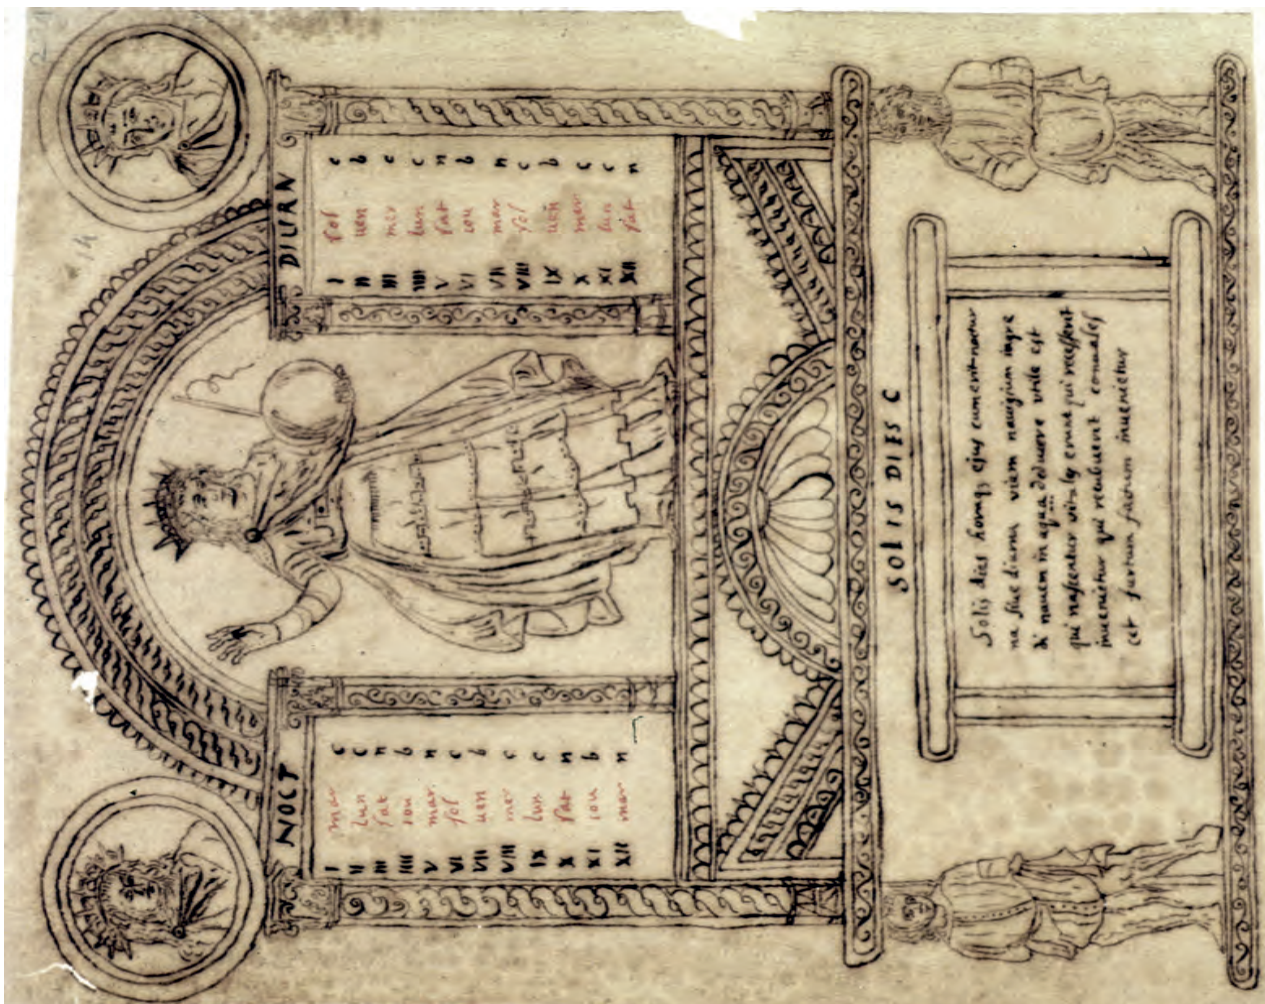 NOCT
I mar c
II lun c
III sat n
IIII iou b
V mar n
VI sol c
VII uen b
VIII mer c
IX lun c
X sat n
XI iou b
XII mar n
DIURN
I sol c
II uen b
III mer c
IIII lun c
V sat n
VI iou b
VII mar n
VIII sol c
IX uen b
X mer c
XI lun c
XII sat n
SOLIS DIES C
Solis dies horaq; ejus cum erit noctur
na siue diurna viam nauigium ingre
di nauem in aqua deducere utile est
qui nascentur erunt qui recesserit
inuenietur qui recubuerit conuales
cet furtum factum inuenietur